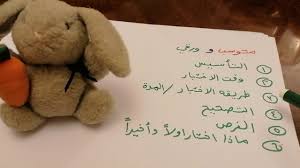 متوسن و ورقي
١ التأسيس
٢ وقت الاختبار
٣ طريقة الاختبار / المدة
٤ التصحيح
٥ الفرص
٦ ماذا اختار اولاً وأخيراً